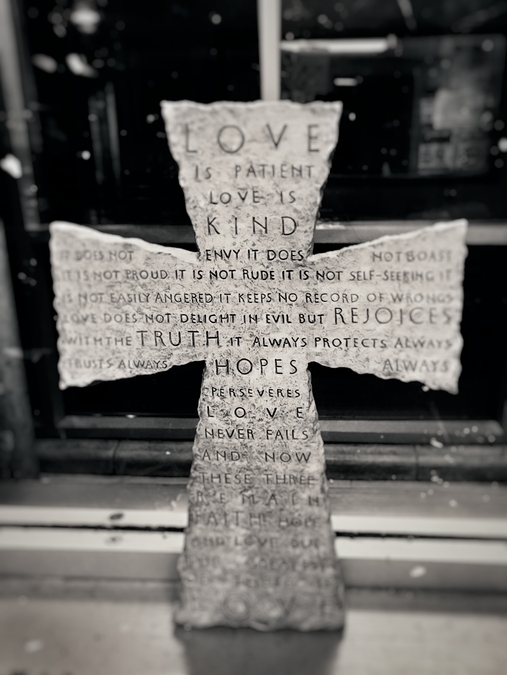 LOVE
IS PATIENT
LOVE IS
KIND
IT DOES NOT ENVY IT DOES NOT BOAST
IT IS NOT PROUD IT IS NOT RUDE IT IS NOT SELF-SEEKING IT
IS NOT EASILY ANGERED IT KEEPS NO RECORD OF WRONGS
LOVE DOES NOT DELIGHT IN EVIL BUT REJOICES
WITH THE TRUTH IT ALWAYS PROTECTS ALWAYS
TRUSTS ALWAYS HOPES ALWAYS
PERSEVERES
LOVE
NEVER FAILS
AND NOW
THESE THREE
REMAIN
FAITH HOPE
AND LOVE